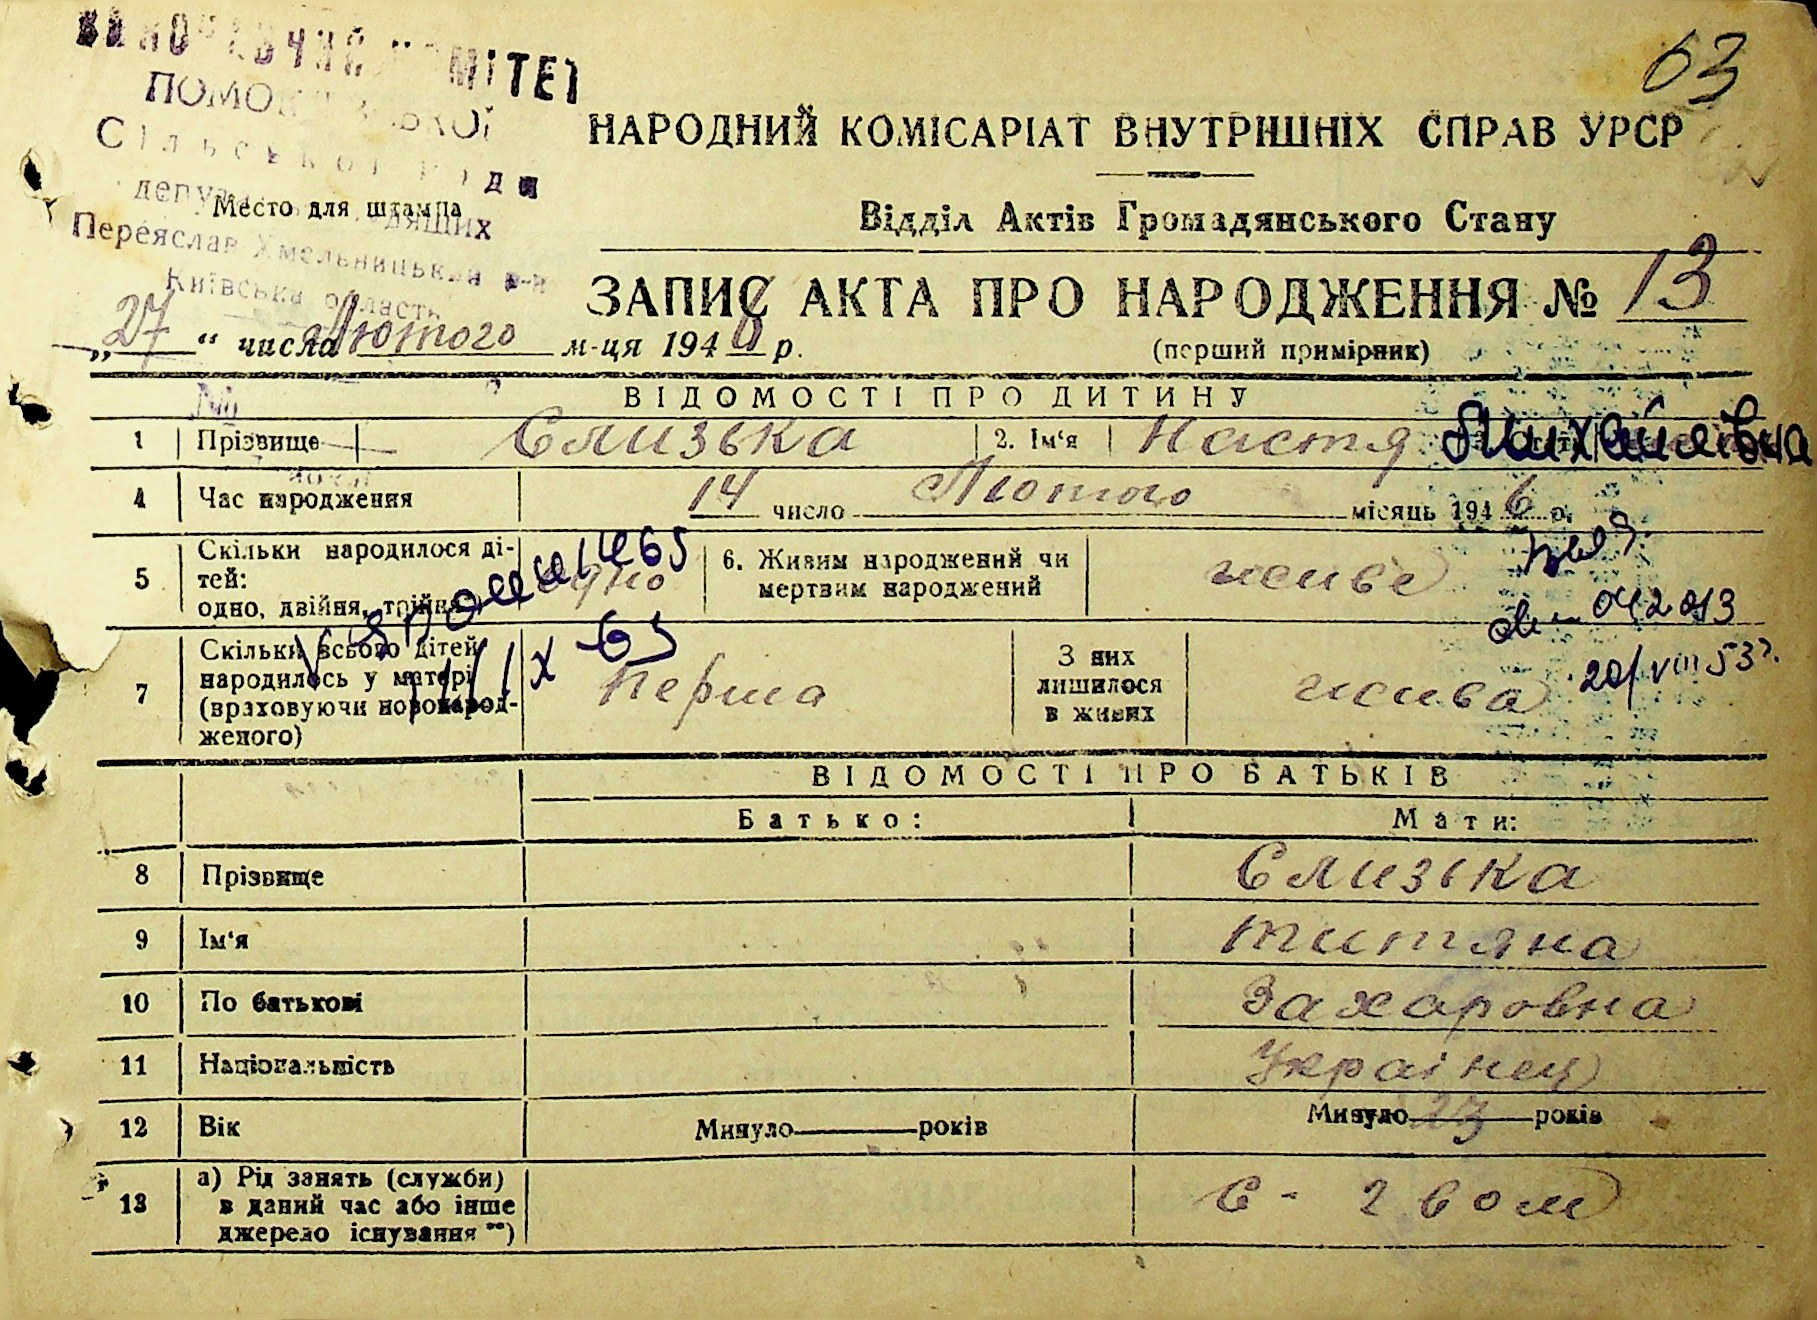 63
ВИКОНАВЧИЙ КОМІТЕТ
Сільської ради
Переяслав Хмельницький р-н
Київська область
Место для штампа
НАРОДНИЙ КОМІСАРІАТ ВНУТРІШНІХ СПРАВ УРСР
Відділ Актів Громадянського Стану
ЗАПИС АКТА ПРО НАРОДЖЕННЯ № 13
„27“ числа Лютого м-ця 194 р.
(перший примірник)
ВІДОМОСТІ ПРО ДИТИНУ
1 Прізвище Єлизька 2. Ім‘я Настя Михайлівна
4 Час народження 14 число Лютого місяць 1946 р.
5 Скільки народилося ді-
тей:
одно, двійня, трійня
одно
6. Живим народжений чи
мертвим народжений
живе
20/VIII 53 г.
7 Скільки всього дітей
народилось у матері
(враховуючи новонарод-
женого)
перша
З них
лишилося
в живих
жива
ВІДОМОСТІ ПРО БАТЬКІВ
Батько: Мати:
8 Прізвище Єлизька
9 Ім‘я Титяна
10 По батькові Захаровна
11 Національність Українец
12 Вік Минуло років Минуло 23 років
13 а) Рід занять (служби)
в даний час або інше
джерело існування **)